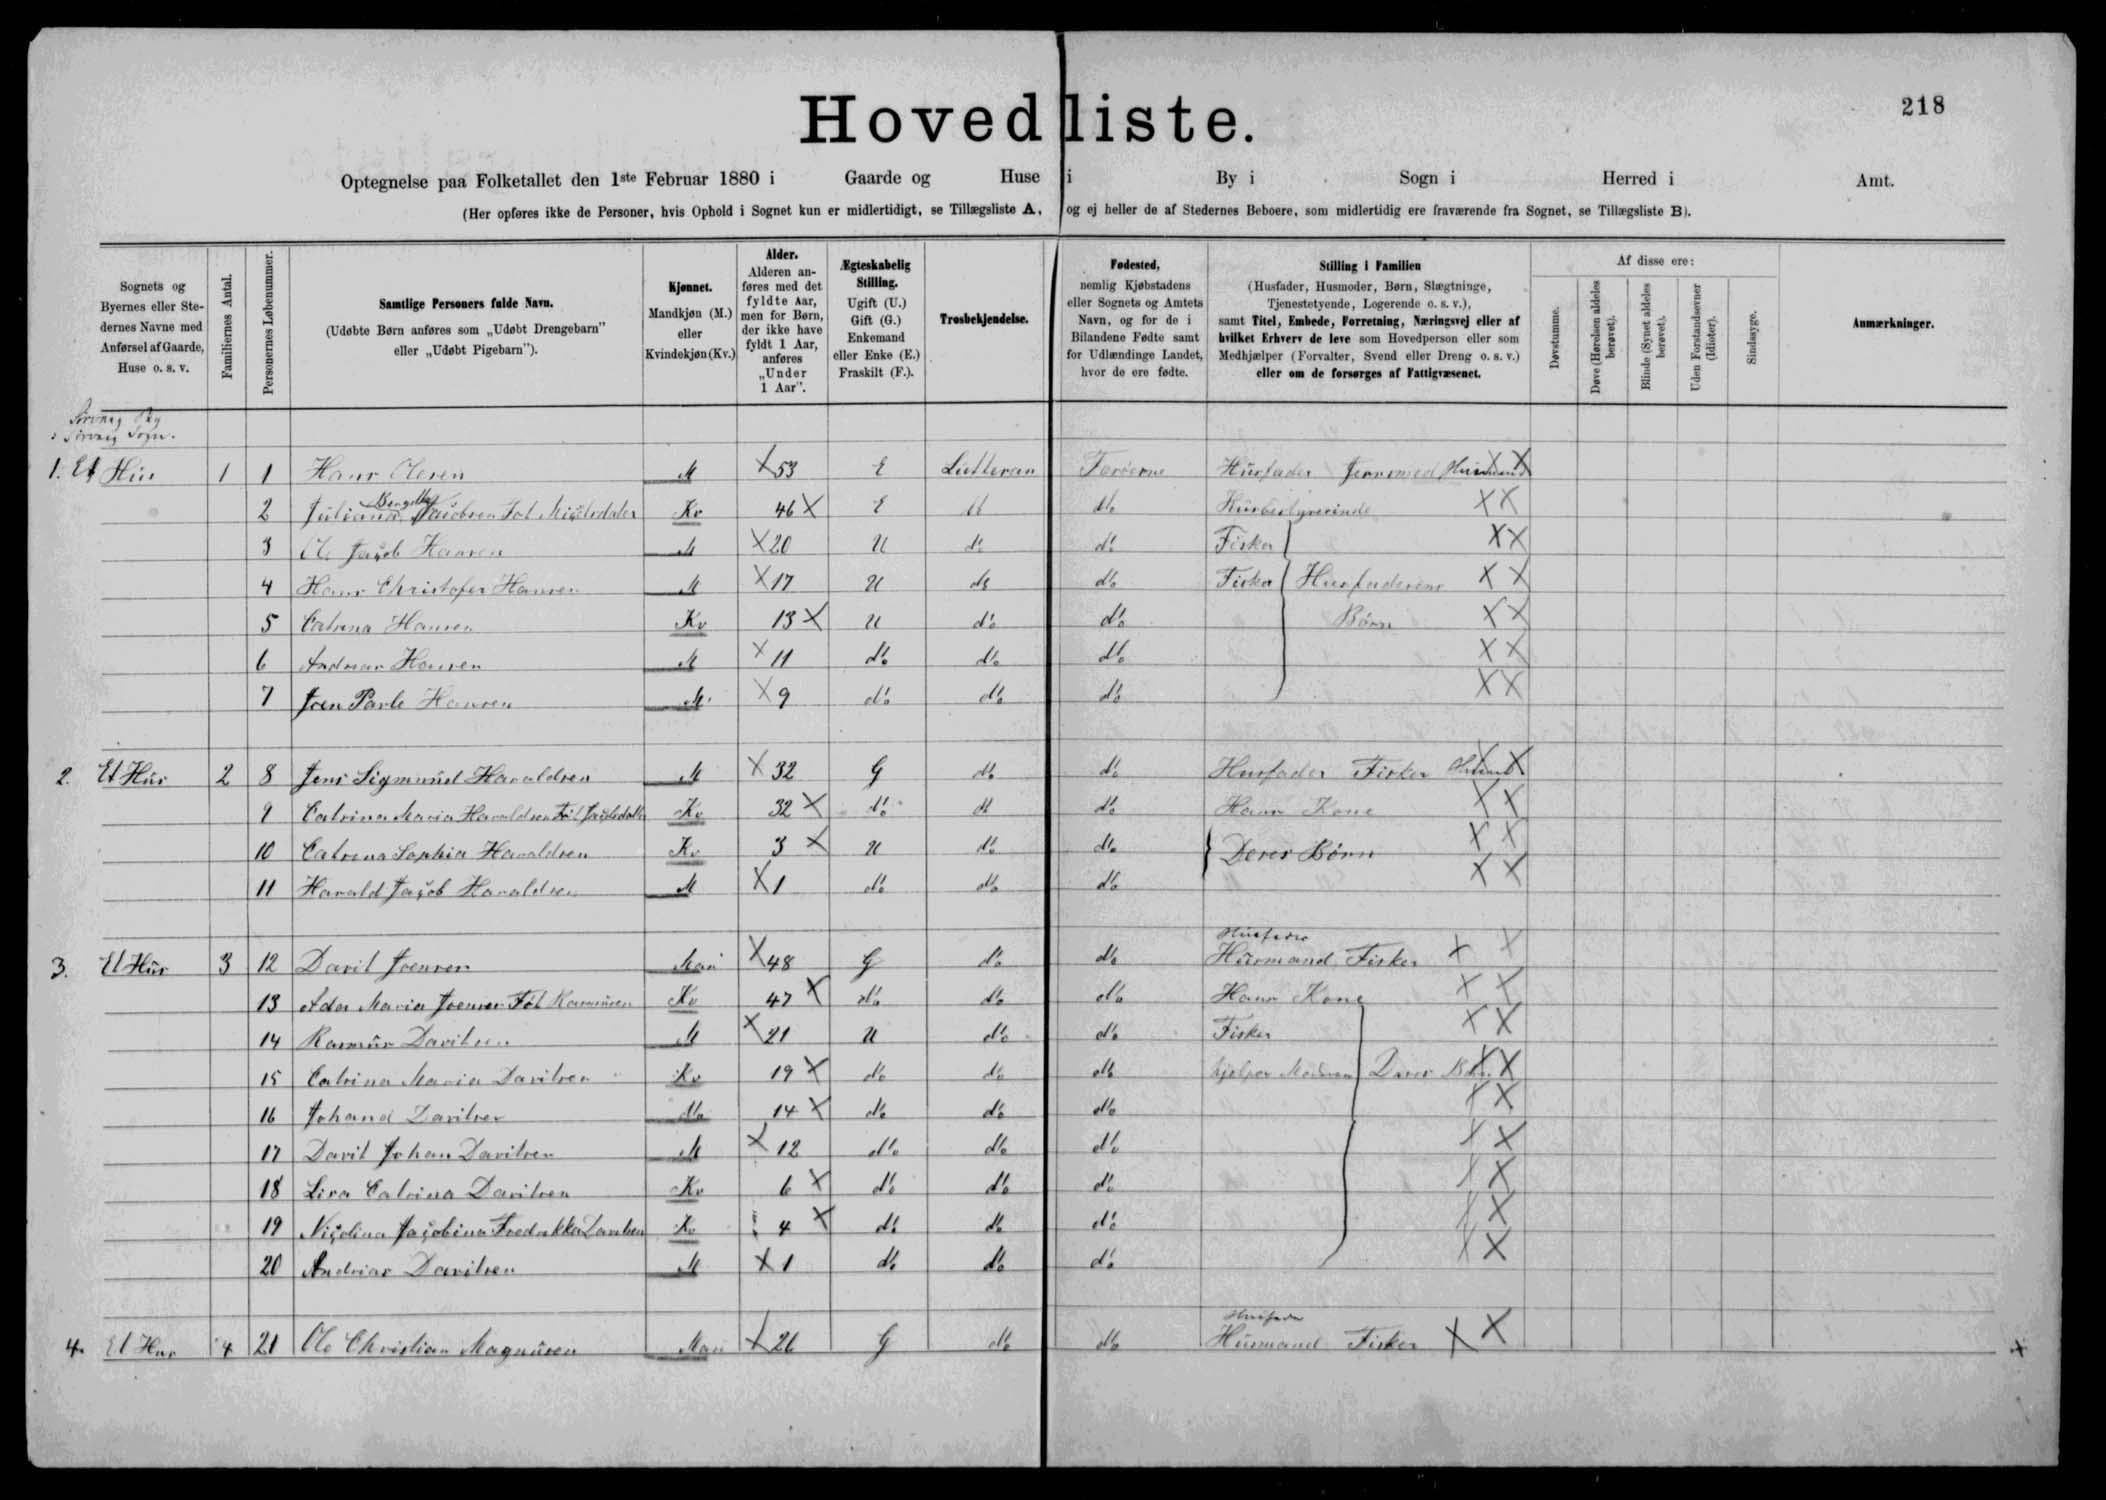 218
Hovedliste.
Optegnelse paa Folketallet den 1ste Februar 1880 i Gaarde og Huse i By i Sogn i Herred i Amt.
(Her opføres ikke de Personer, hvis Ophold i Sognet kun er midlertidigt, se Tillægsliste A, og ej heller de af Stedernes Beboere, som midlertidig ere fraværende fra Sognet, se Tillægsliste B).
Sognets og Byernes eller Stedernes Navne med Anførsel af Gaarde, Huse o. s. v.
Familiernes Antal.
Personernes Løbenummer.
Samtlige Personers fulde Navn.
(Udøbte Børn anføres som „Udøbt Drengebarn" eller „Udøbt Pigebarn").
Kjønnet.
Mandkjøn (M.) eller Kvindekjøn (Kv.)
Alder.
Alderen anføres med det fyldte Aar, men for Børn, der ikke have fyldt 1 Aar, anføres „Under 1 Aar".
Ægteskabelig Stilling.
Ugift (U.) Gift (G.) Enkemand eller Enke (E.) Fraskilt (F.).
Trosbekjendelse.
Fødested,
nemlig Kjøbstadens eller Sognets og Amtets Navn, og for de i Bilandene Fødte samt for Udlændinge Landet, hvor de ere fødte.
Stilling i Familien
(Husfader, Husmoder, Børn, Slægtninge, Tjenestetyende, Logerende o. s. v.),
samt Titel, Embede, Forretning, Næringsvej eller af hvilket Erhverv de leve som Hovedperson eller som Medhjælper (Forvalter, Svend eller Dreng o. s. v.) eller om de forsørges af Fattigvæsenet.
Af disse ere:
Døvstumme.
Døve (Hørelsen aldeles berøvet).
Blinde (Synet aldeles berøvet).
Uden Forstandsevner (Idioter).
Sindssyge.
Anmærkninger.
Sørvaag By
i Sørvaag Sogn.
1. Et Hus 1 1 Hans Olesen M X 53 E Lutteran Færøerne Husfader Husmand X
2 Juliana Jacobsen Føt Kv 46 X E do do Husbestyrerinde X X
3 Ole Jacob Hansen M X 20 U do do Fisker X X
4 Hans Christofer Hansen M X 17 U do do Fisker Husfaderens X X
5 Catrina Hansen Kv 13 X U do do Børn X X
6 Andreas Hansen M X 11 do do do X X
7 Joen Parle Hansen M X 9 do do do X X
2. Et Hus 2 8 Jens Sigmund Haraldsen M X 32 G do do Husfader Fisker X X
9 Catrina Maria Haraldsen Føt Kv 32 X do do do Hans Kone X X
10 Catrina Sophia Haraldsen Kv 3 X U do do Deres Børn X X
11 Harald Jacob Haraldsen M X 1 do do do X X
Husfader
3. Et Hus 3 12 Davit Joensen Man X 48 G do do Husmand Fisker X X
13 Ada Maria Joensen Føt Rasmusen Kv 47 X do do do Hans Kone X X
14 Rasmus Davitsen M X 21 U do do Fisker X X
15 Catrina Maria Davitsen Kv 19 X do do do hjelper Moderen Deres Børn X X
16 Johana Davitsen do 14 X do do do X X
17 Davit Johan Davitsen M X 12 do do do X X
18 Lisa Catrina Davitsen Kv 6 X do do do X X
19 Nicolina Jacobina Fredrikka Davitsen Kv 4 X do do do X X
20 Andrias Davitsen M X 1 do do do X X
Husfader
4. Et Hus 4 21 Ole Christian Magnusen Man X 26 G do do Husmand Fisker X X